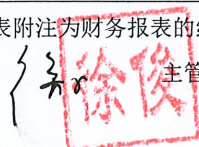 表附注为财务报表的
徐俊
主管